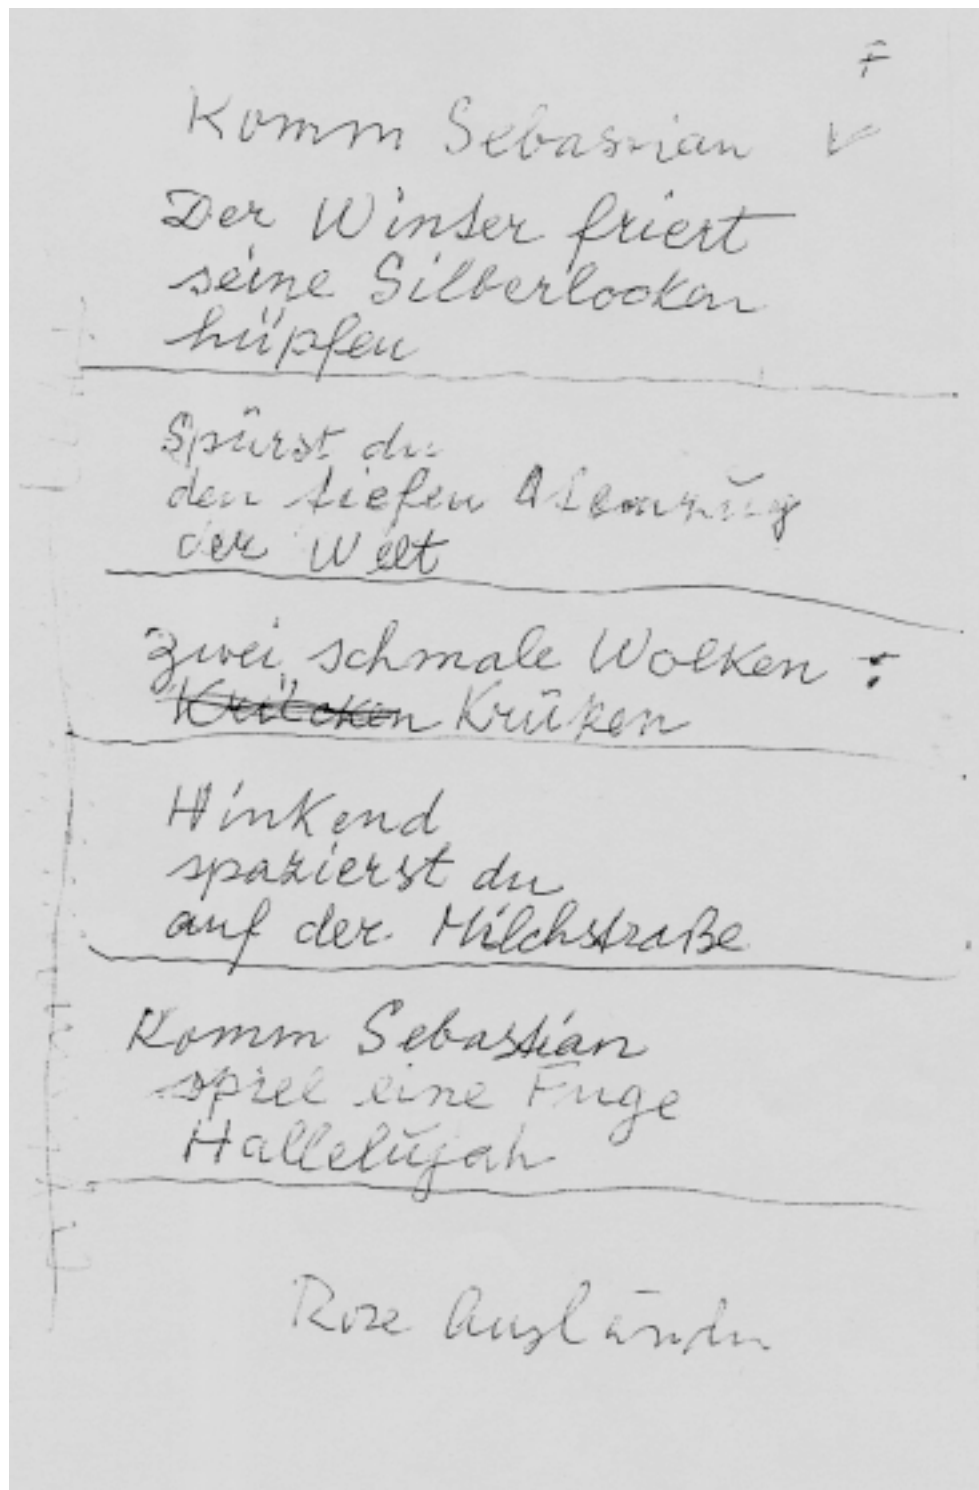 F
Komm Sebastian V
Der Winter friert
seine Silberlocken
hüpfen
Spürst du
den tiefen Atemzug
der Welt
Zwei schmale Wolken :
Krücken Krüken
Hinkend
spazierst du
auf der Milchstraße
Komm Sebastian
spiel eine Fuge
Hallelujah
Rose Ausländer